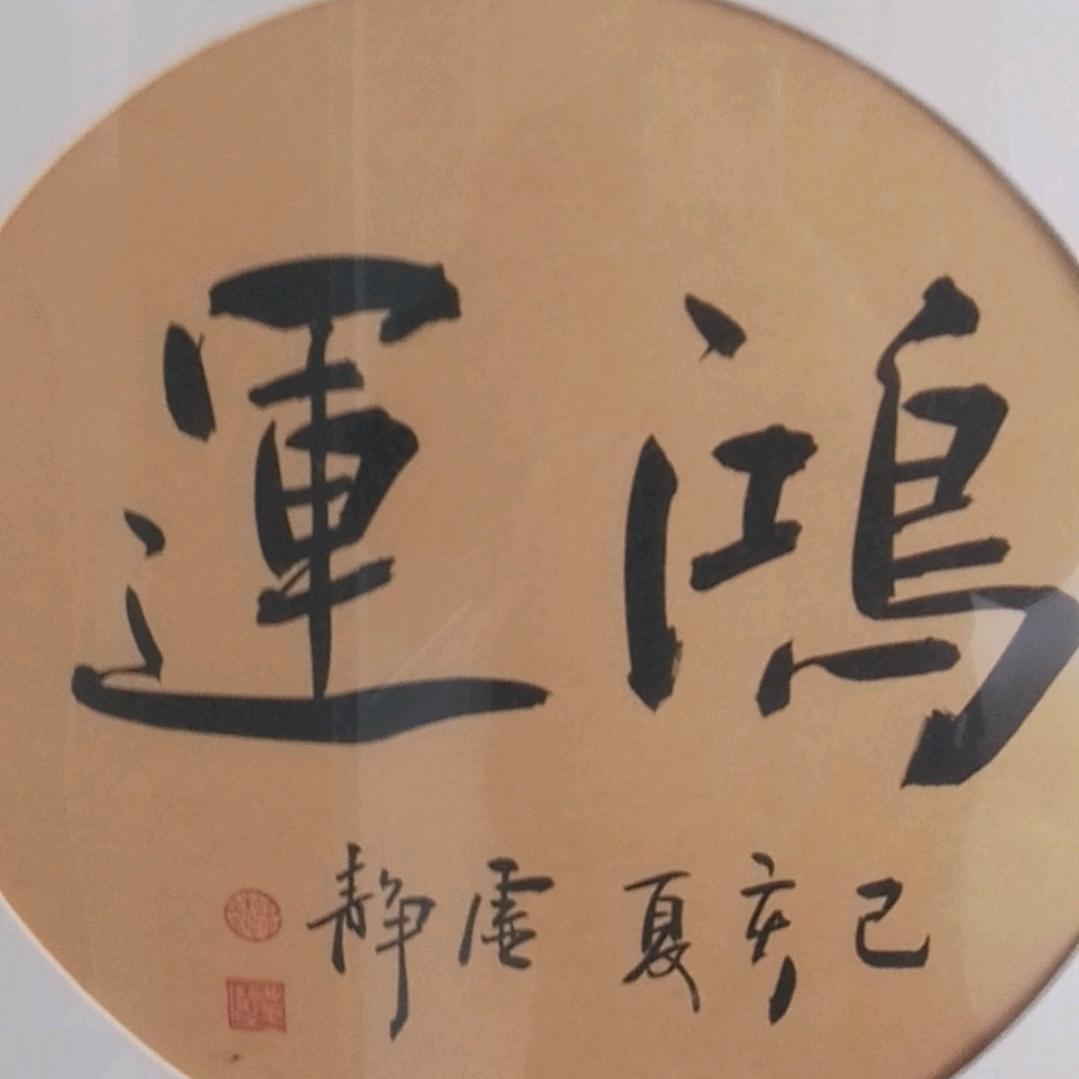 鴻運
己亥夏虛静